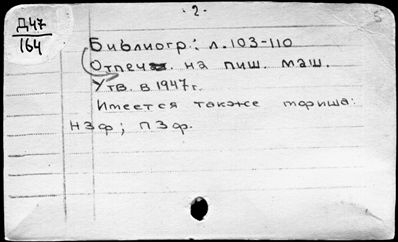 - 2 -
Д47
164
Библиогр.: л. 103-110
Отпеч. на пиш. маш.
Утв. в 1947 г.
Имеется также тфиша:
НЗф; ПЗф.